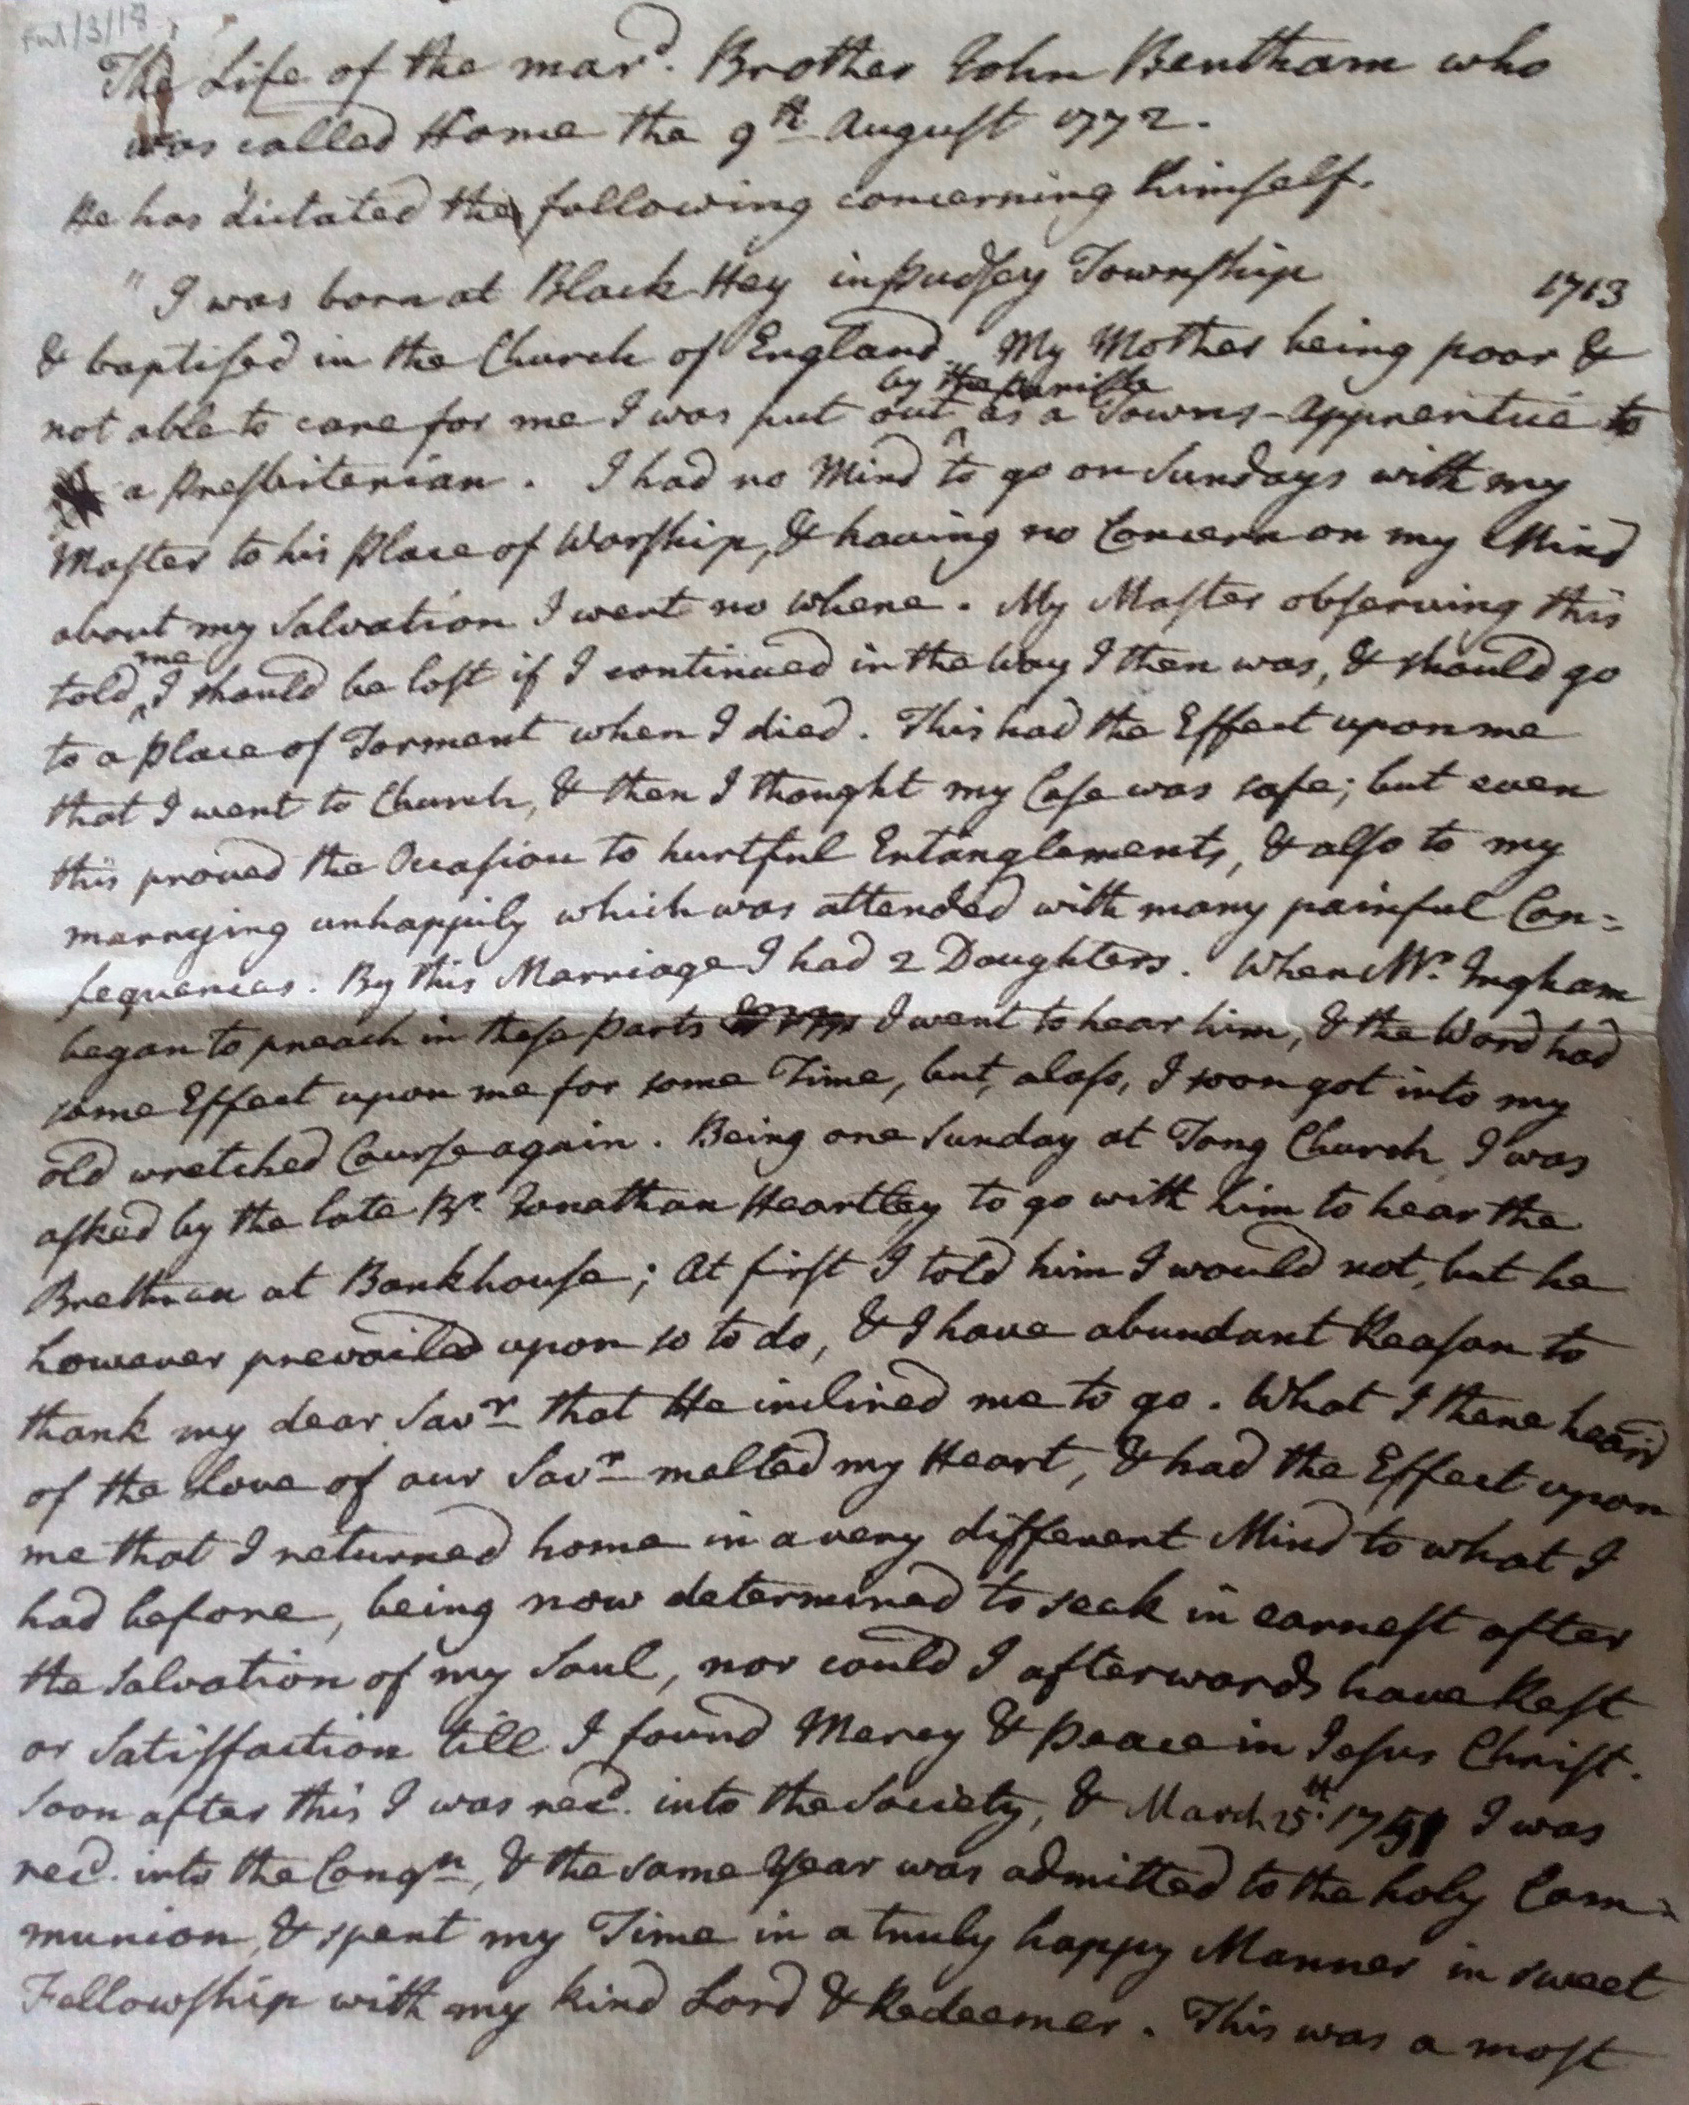 Ful/3/18
The Life of the mard. Brother John Bentham who
was called Home the 9th August 1772.
He has dictated the following concerning himself.
"I was born at Black Hey in Pudsey Township 1713
& baptised in the Church of England. My Mother being poor &
by the Parish
not able to care for me I was put out as a Towns-Apprentice to
a Presbiterian. I had no Mind to go on Sundays with my
Master to his Place of Worship, & having no Concern on my Mind
about my Salvation I went no where. My Master observing this
told me I should be lost if I continued in the Way I then was, & should go
to a Place of Torment when I died. This had the Effect upon me
that I went to Church, & then I thought my Case was safe; but even
this proved the Occasion to hurtful Entanglements, & also to my
marrying unhappily which was attended with many painful Con=
sequences. By this Marriage I had 2 Daughters. When Mr. Ingham
began to preach in these Parts I went to hear him, & the Word had
some Effect upon me for some Time, but, alass, I soon got into my
old wretched Course again. Being one Sunday at Tong Church I was
asked by the late Br. Jonathan Heartley to go with him to hear the
Brethren at Bankhouse; At first I told him I would not, but he
however prevailed upon so to do, & I have abundant Reason to
thank my dear Savr. that He inclined me to go. What I there heard
of the Love of our Savr. melted my Heart, & had the Effect upon
me that I returned home in a very different Mind to what I
had before, being now determined to seek in earnest after
the Salvation of my Soul, nor could I afterwards have Rest
or Satisfaction till I found Mercy & Peace in Jesus Christ.
Soon after this I was recd. into the Society, & March 25th. 1751 I was
recd. into the Congn, & the same Year was admitted to the holy Com=
munion, & spent my Time in a truly happy Manner in sweet
Fellowship with my kind Lord & Redeemer. This was a most